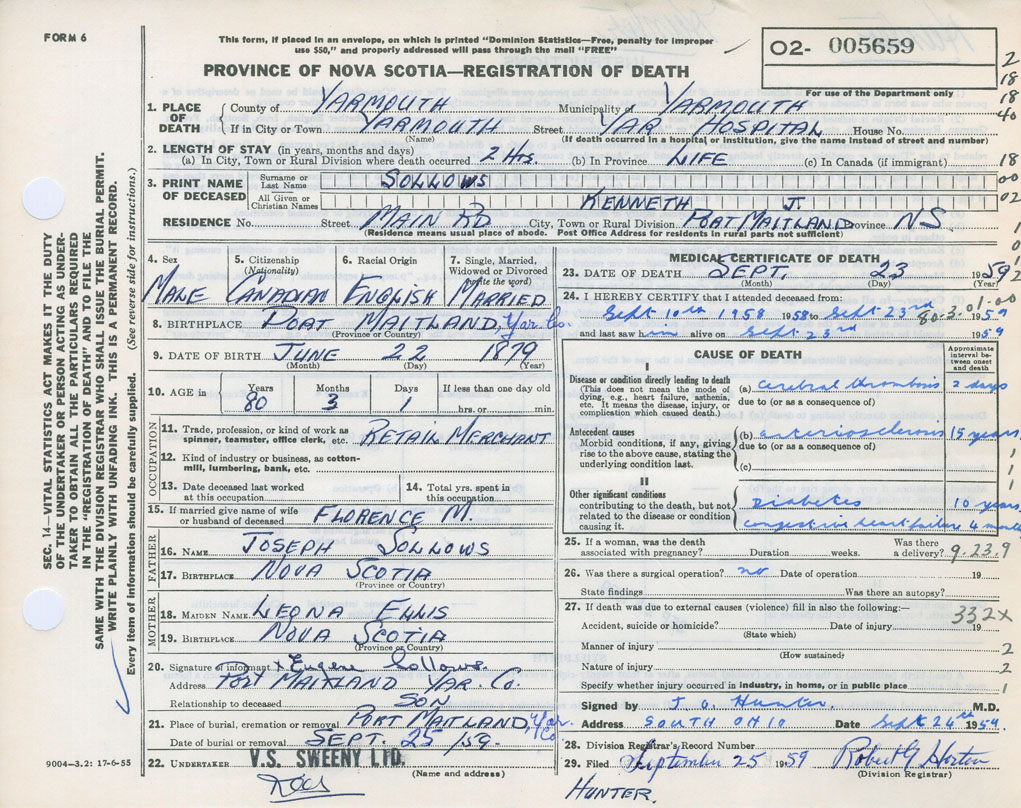 FORM 6
This form, if placed in an envelope, on which is printed "Dominion Statistics—Free, penalty for improper
use $50," and properly addressed will pass through the mail "FREE"
O2- 005659
For use of the Department only
PROVINCE OF NOVA SCOTIA—REGISTRATION OF DEATH
SEC. 14—VITAL STATISTICS ACT MAKES IT THE DUTY
OF THE UNDERTAKER OR PERSON ACTING AS UNDER-
TAKER TO OBTAIN ALL THE PARTICULARS REQUIRED
IN THE "REGISTRATION OF DEATH" AND TO FILE THE
SAME WITH THE DIVISION REGISTRAR WHO SHALL ISSUE THE BURIAL PERMIT.
WRITE PLAINLY WITH UNFADING INK. THIS IS A PERMANENT RECORD.
Every item of information should be carefully supplied. (See reverse side for instructions.)
1. PLACE OF DEATH
County of YARMOUTH Municipality of YARMOUTH
If in City or Town YARMOUTH Street YAR HOSPITAL House No.
(Name) (If death occurred in a hospital or institution, give the name instead of street and number)
2. LENGTH OF STAY (in years, months and days)
(a) In City, Town or Rural Division where death occurred 2 Hrs. (b) In Province LIFE (c) In Canada (if immigrant)
3. PRINT NAME OF DECEASED
Surname or Last Name SOLLOWS
All Given or Christian Names KENNETH J.
RESIDENCE No. Street MAIN RD City, Town or Rural Division PORT MAITLAND Province NS
(Residence means usual place of abode. Post Office Address for residents in rural parts not sufficient)
4. Sex MALE
5. Citizenship (Nationality) CANADIAN
6. Racial Origin ENGLISH
7. Single, Married, Widowed or Divorced (write the word) MARRIED
8. BIRTHPLACE PORT MAITLAND, Yar. Co.
(Province or Country)
9. DATE OF BIRTH JUNE 22 1879
(Month) (Day) (Year)
10. AGE in Years 80 Months 3 Days 1 If less than one day old hrs. or min.
OCCUPATION
11. Trade, profession, or kind of work as
spinner, teamster, office clerk, etc. RETAIL MERCHANT
12. Kind of industry or business, as cotton-
mill, lumbering, bank, etc.
13. Date deceased last worked
at this occupation
14. Total yrs. spent in
this occupation
15. If married give name of wife
or husband of deceased FLORENCE M.
FATHER
16. NAME JOSEPH SOLLOWS
17. BIRTHPLACE NOVA SCOTIA
(Province or Country)
MOTHER
18. MAIDEN NAME LEONA ELLIS
19. BIRTHPLACE NOVA SCOTIA
(Province or Country)
20. Signature of informant x Eugene Sollows
Address PORT MAITLAND YAR. CO.
Relationship to deceased SON
21. Place of burial, cremation or removal PORT MAITLAND, Yar. Co
Date of burial or removal SEPT. 25 /59.
22. UNDERTAKER V.S. SWEENY LTD.
(Name and address)
9004—3.2: 17-6-55
MEDICAL CERTIFICATE OF DEATH
23. DATE OF DEATH SEPT. 23 1959
(Month) (Day) (Year)
24. I HEREBY CERTIFY that I attended deceased from:
Sept 10th 1958 1958 to Sept 23rd 1959
80-3-01-00
and last saw him alive on Sept 23rd 1959
CAUSE OF DEATH
Approximate interval be-tween onset and death
I
Disease or condition directly leading to death
(This does not mean the mode of
dying, e.g., heart failure, asthenia,
etc. It means the disease, injury, or
complication which caused death.)
(a) cerebral thrombosis 2 days
due to (or as a consequence of)
Antecedent causes
Morbid conditions, if any, giving
rise to the above cause, stating the
underlying condition last.
(b) arteriosclerosis 15 years
due to (or as a consequence of)
(c)
II
Other significant conditions
contributing to the death, but not
related to the disease or condition
causing it.
Diabetes 10 years
congestive heart failure 4 months
25. If a woman, was the death
associated with pregnancy? Duration weeks. Was there a delivery? 9.23.9
26. Was there a surgical operation? no Date of operation 19
State findings Was there an autopsy?
27. If death was due to external causes (violence) fill in also the following:—
332x
Accident, suicide or homicide? Date of injury 19
(State which)
Manner of injury 2
(How sustained)
Nature of injury 2
Specify whether injury occurred in industry, in home, or in public place 1
Signed by J. C. Hunter. M.D.
Address SOUTH OHIO Date Sept 24th 1959.
28. Division Registrar's Record Number
29. Filed September 25 1959 Robert G Horton
(Division Registrar)
HUNTER.
2
18
18
40
18
00
02
1
0
1
2
1
1
1